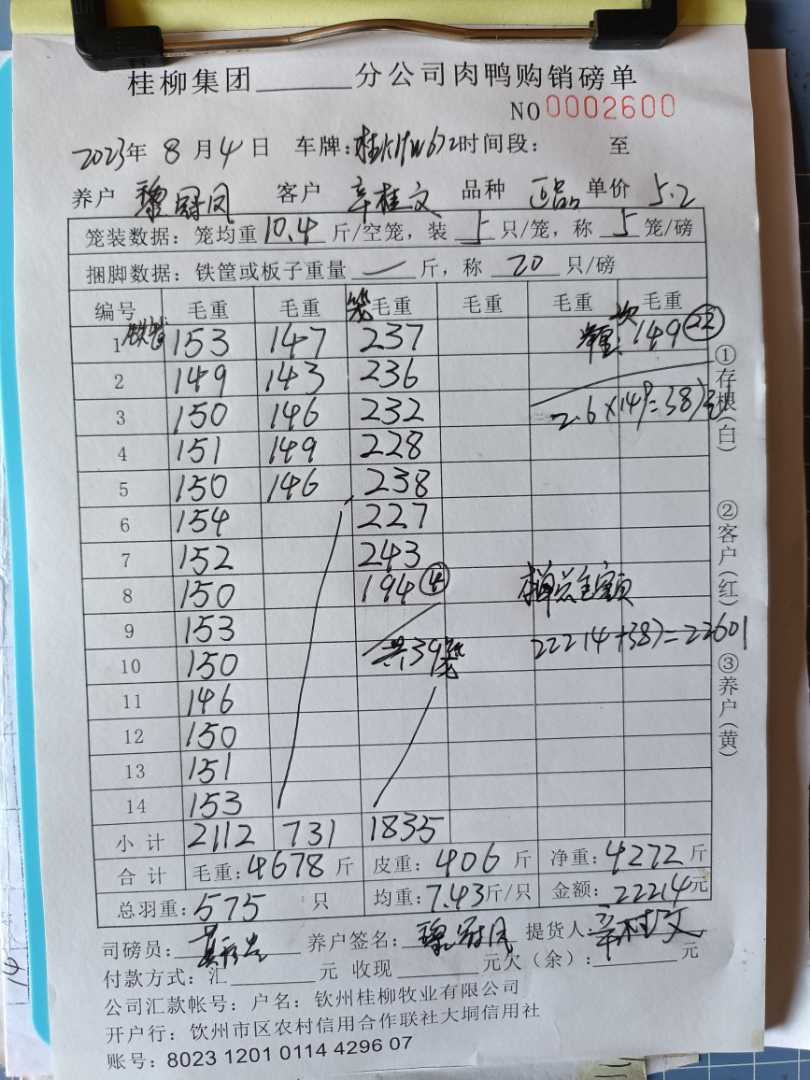 桂柳集团______分公司肉鸭购销磅单
NO 0002600
2023年 8月4日 车牌: 时间段: 至
养户 黎冠凤 客户 辛桂文 品种 正品 单价 5.2
笼装数据: 笼均重 10.4 斤/空笼, 装 5 只/笼, 称 5 笼/磅
捆脚数据: 铁筐或板子重量 — 斤, 称 20 只/磅
编号 毛重 毛重 笼 毛重 毛重 毛重 毛重
1 153 147 237 次 149 22
2 149 143 236
3 150 146 232 2.6×149=387元
4 151 149 228
5 150 146 238
6 154 227
7 152 243
8 150 194 ④ 本单总金额
9 153 共39笼 22214+387=22601
10 150
11 146
12 150
13 151
14 153
小计 2112 731 1835
合计 毛重: 4678 斤 皮重: 406 斤 净重: 4272 斤
总羽重: 575 只 均重: 7.43 斤/只 金额: 22214 元
司磅员: 养户签名: 黎冠凤 提货人: 辛桂文
付款方式: 汇______元 收现______元欠(余): ______元
公司汇款帐号: 户名: 钦州桂柳牧业有限公司
开户行: 钦州市区农村信用合作联社大垌信用社
账号: 8023 1201 0114 4296 07
①存根(白)
②客户(红)
③养户(黄)